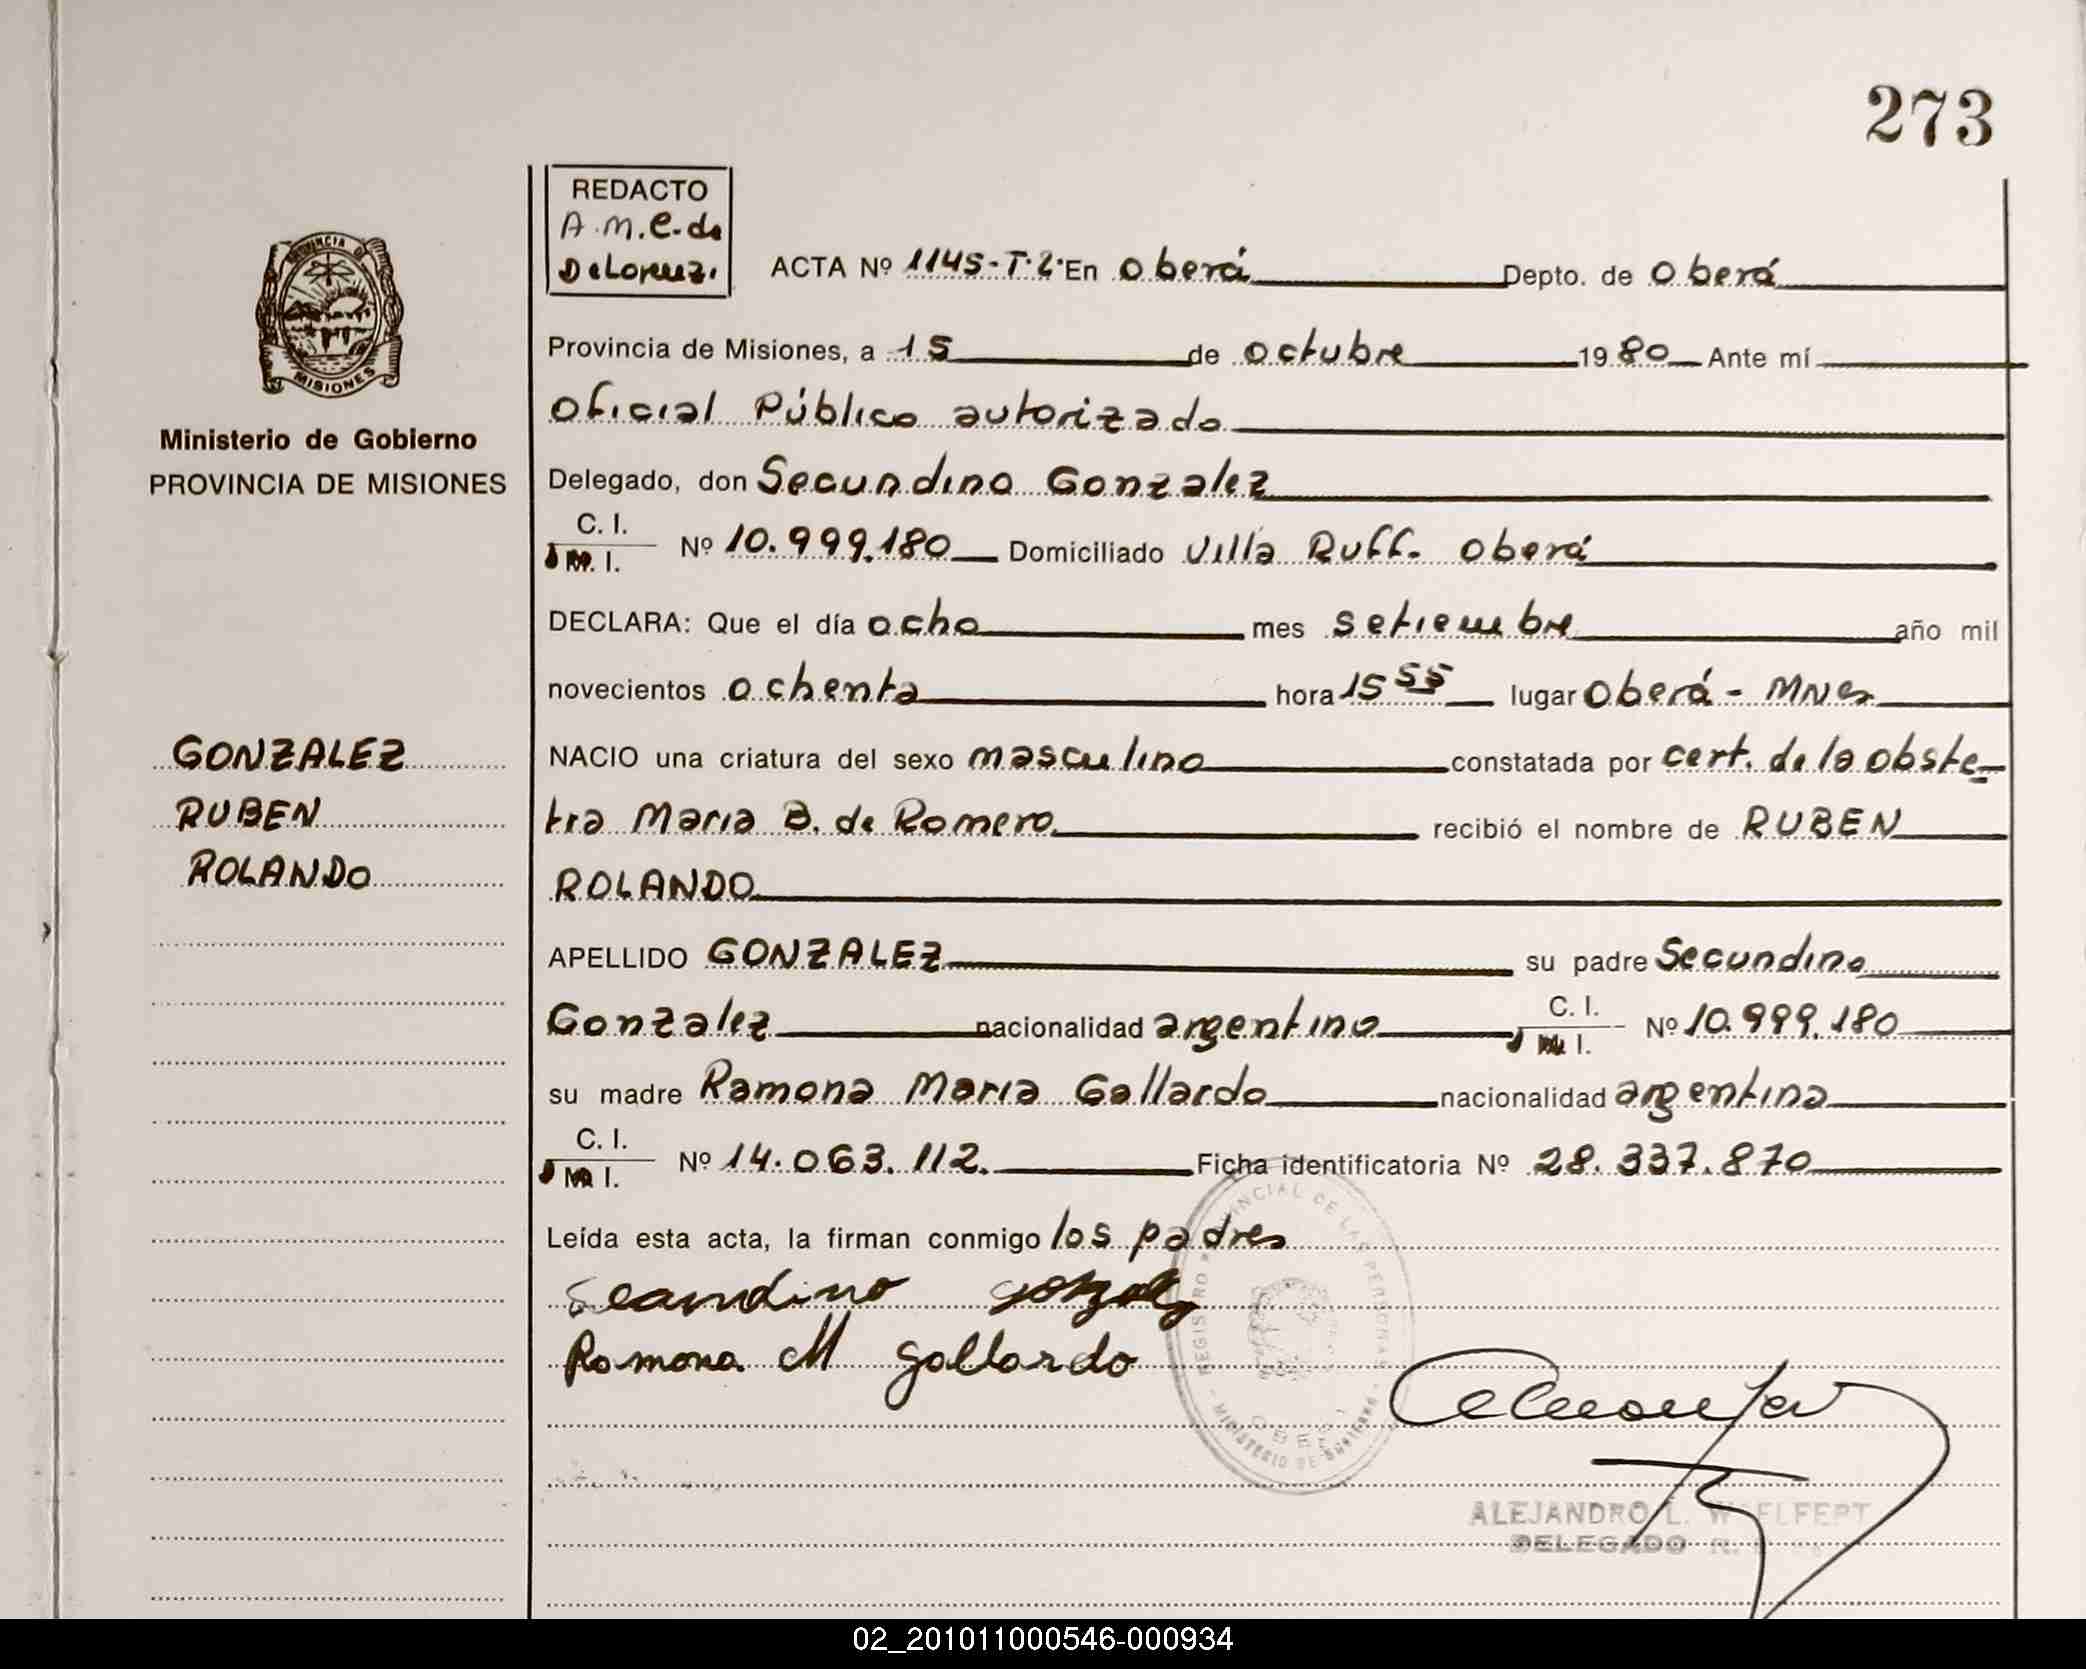 273
REDACTO
A.M.C. de
DeLorenzi
ACTA Nº 1145-T.2º En Oberá Depto. de Oberá
Provincia de Misiones, a 15 de octubre 1980 Ante mí
Oficial Público autorizado
Delegado, don Secundino Gonzalez
C. I.
I. Nº 10.999.180 Domiciliado Villa Ruff. Oberá
DECLARA: Que el día ocho mes setiembre año mil
novecientos ochenta hora 15 55 lugar Oberá - Mnes
NACIO una criatura del sexo masculino constatada por cert. de la obste-
tra Maria B. de Romero recibió el nombre de RUBEN
ROLANDO
APELLIDO GONZALEZ su padre Secundino
Gonzalez nacionalidad argentino C. I.
I. Nº 10.999.180
su madre Ramona Maria Gallardo nacionalidad argentina
C. I.
I. Nº 14.063.112. Ficha identificatoria Nº 28.337.870
Leída esta acta, la firman conmigo los padres
Secundino Gonzalez
Ramona M Gallardo
REGISTRO PROVINCIAL DE LAS PERSONAS
MINISTERIO DE GOBIERNO
ALEJANDRO L. WOELFERT
DELEGADO
PROVINCIA DE
MISIONES
Ministerio de Gobierno
PROVINCIA DE MISIONES
GONZALEZ
RUBEN
ROLANDO
02_201011000546-000934